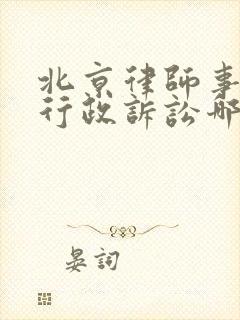 北京律師事
行政訴訟哪
晏詞